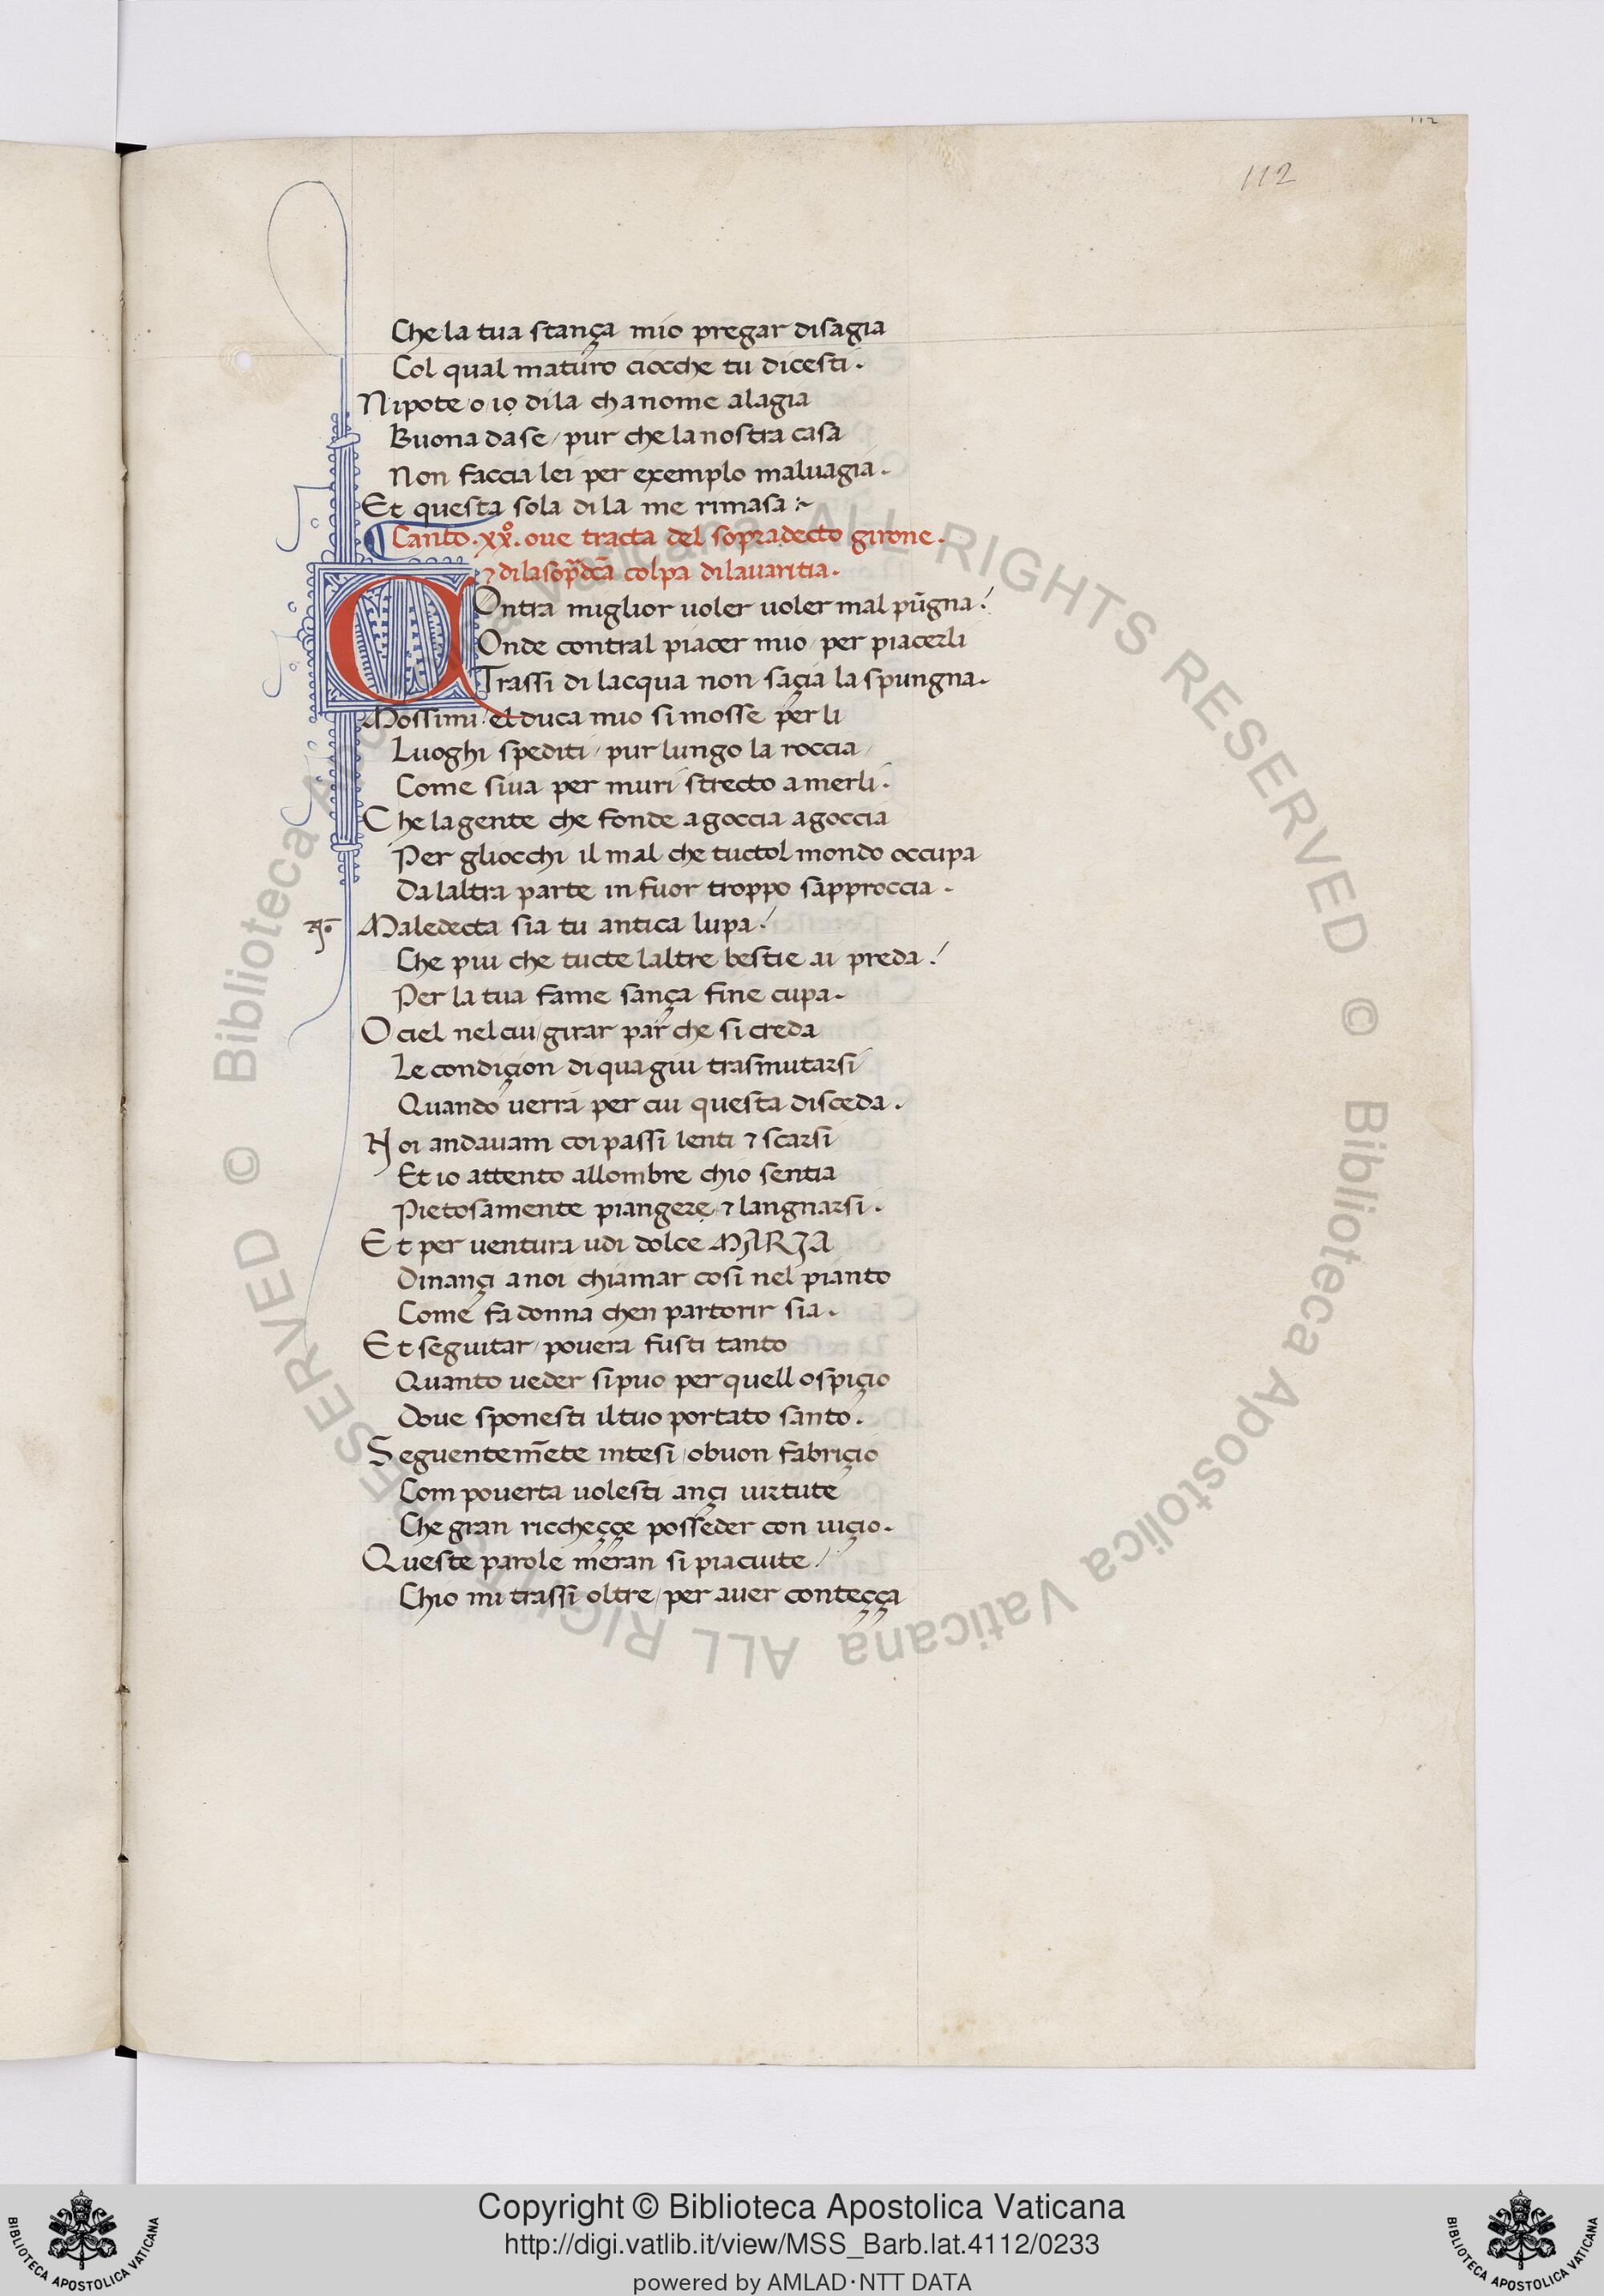 112
112
Che la tua stança mio pregar disagia
Col qual maturo ciocche tu dicesti.
Nipote o io dila cha nome alagia
Buona da se / pur che la nostra casa
Non faccia lei per exemplo maluagia.
Et questa sola di la me rimasa
Canto .xxº. oue tracta del sopradecto girone.
⁊ dila sop̄dc̄a colpa dilauaritia.
COntra miglior uoler uoler mal pūgna /
Onde contral piacer mio / per piacerli
Trassi di lacqua non saçia la spungna.
Mossimi / el duca mio si mosse per li
Luoghi spediti / pur lungo la roccia /
Come siua per muri strecto a merli.
Che la gente che fonde a goccia a goccia
Per gliocchi il mal che tuctol mondo occupa
Da laltra parte in fuor troppo sapproccia.
Maledecta sia tu antica lupa /
Che piu che tucte laltre bestie ai preda /
Per la tua fame sança fine cupa.
O ciel nel cui girar par che si creda
Le condiçion di qua giu trasmutarsi
Quando uerra per cui questa disceda.
Noi andauam coi passi lenti ⁊ scarsi
Et io attento allombre chio sentia
Pietosamente piangere ⁊ langnarsi.
Et per uentura udi dolce MARIA
Dinançi a noi chiamar cosi nel pianto
Come fa donna chen partorir sia.
Et seguitar / pouera fusti tanto
Quanto ueder si puo per quell ospiçio
Doue sponesti il tuo portato santo.
Seguentem̄ete intesi / o buon fabriçio
Com pouerta uolesti ançi uirtute
Che gran riccheççe posseder con uiçio.
Queste parole meran si piaciute /
Chio mi trassi oltre / per auer conteçça
© Biblioteca Apostolica Vaticana ALL RIGHTS RESERVED © Biblioteca Apostolica Vaticana ALL RIGHTS RESERVED
Copyright © Biblioteca Apostolica Vaticana
http://digi.vatlib.it/view/MSS_Barb.lat.4112/0233
powered by AMLAD·NTT DATA
BIBLIOTECA APOSTOLICA VATICANA
BIBLIOTECA APOSTOLICA VATICANA